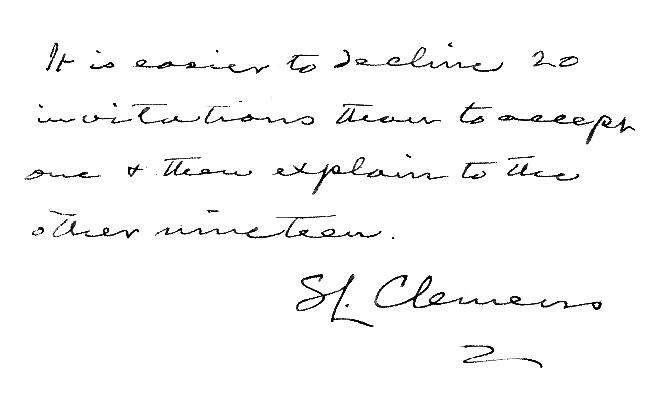 It is easier to decline 20
invitations than to accept
one & then explain to the
other nineteen.
SL. Clemens